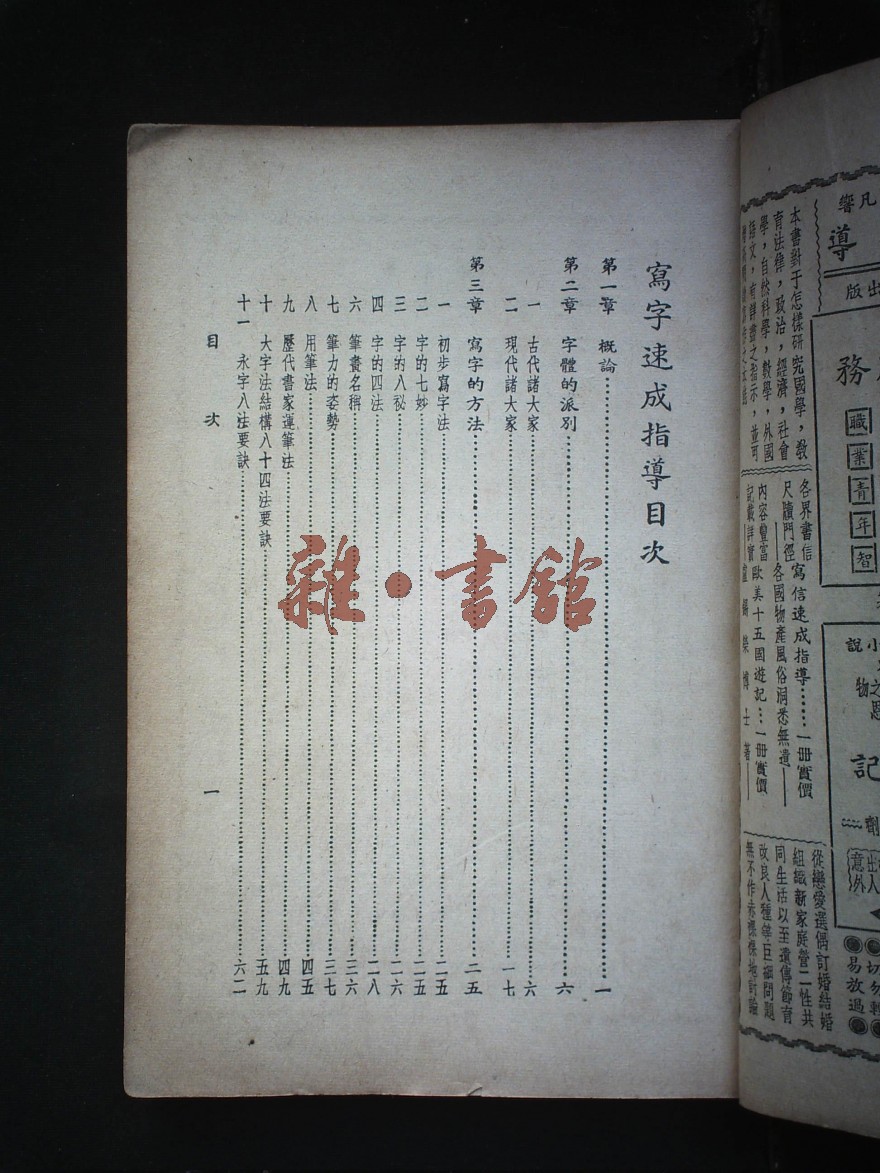 寫字速成指導目次
第一章 概論……一
第二章 字體的派別……六
一 古代諸大家……六
二 現代諸大家……一七
第三章 寫字的方法……二五
一 初步寫字法……二五
二 字的七妙……二五
三 字的八秘……二六
四 字的四法……二八
六 筆畫名稱……三六
七 筆力的姿勢……三七
八 用筆法……四五
九 歷代書家運筆法……四九
十 大字法結構八十四法要訣……五九
十一 永字八法要訣……六二
目 次 一
雜·書館
凡
響
導
出版
務
職業青年智
本書對于怎樣研究國學，教
育法律，政治，經濟，社會
學，自然科學，數學，外國
指文，有詳盡之指示，並可
各界書信
尺牘門徑
寫信速成指導……一冊實價
各國物產風俗洞悉無遺
內容豐富
記載詳實
歐美十五國遊記…一冊實價
博士著
小說
之
物
記
劑
出人
意外
從戀愛選偶訂婚結婚
組織新家庭營二性共
同生活以至遺傳節育
改良人種等巨細問題
無不作赤裸裸地討論
切勿輕
易放過